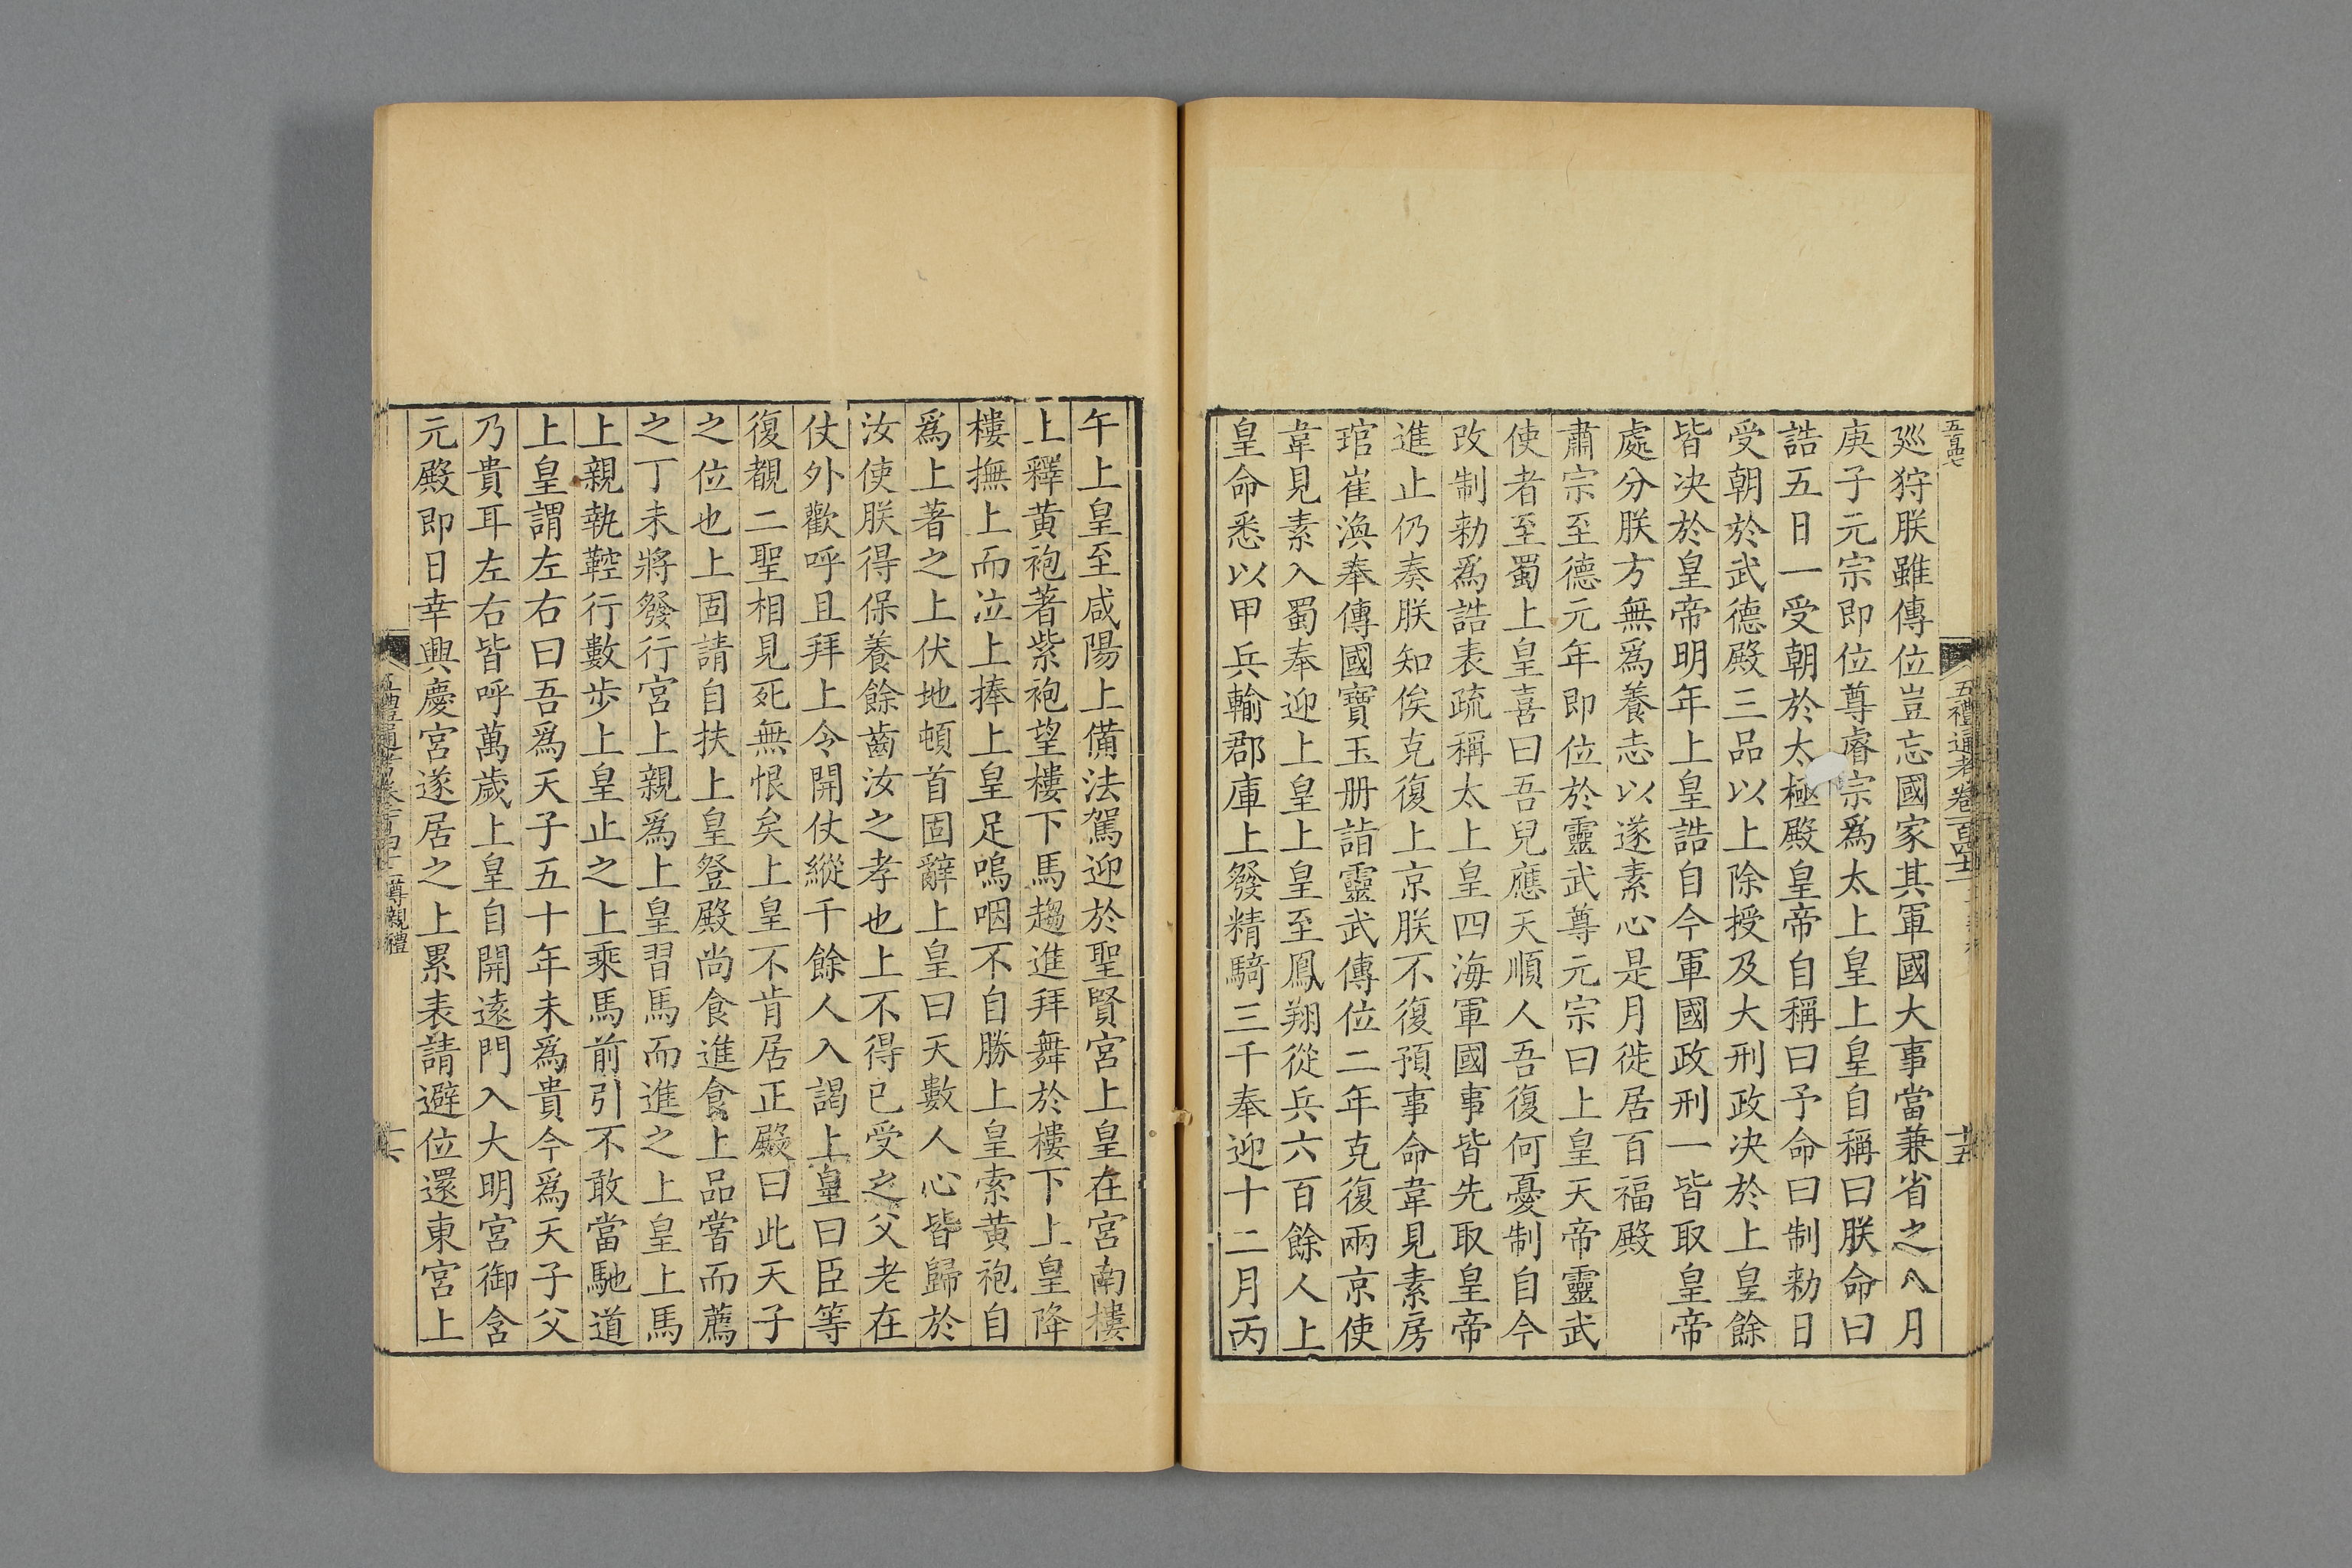 五禮通考卷一百四十二
巡狩朕雖傳位豈忘國家其軍國大事當兼省之八月
庚子元宗即位尊睿宗爲太上皇上皇自稱曰朕命曰
誥五日一受朝於太極殿皇帝自稱曰予命曰制勑日
受朝於武德殿三品以上除授及大刑政决於上皇餘
皆决於皇帝明年上皇誥自今軍國政刑一皆取皇帝
處分朕方無爲養志以遂素心是月徙居百福殿
肅宗至德元年即位於靈武尊元宗曰上皇天帝靈武
使者至蜀上皇喜曰吾兒應天順人吾復何憂制自今
改制勑爲誥表疏稱太上皇四海軍國事皆先取皇帝
進止仍奏朕知俟克復上京朕不復預事命韋見素房
琯崔渙奉傳國寶玉册詣靈武傳位二年克復兩京使
韋見素入蜀奉迎上皇上皇至鳳翔從兵六百餘人上
皇命悉以甲兵輸郡庫上發精騎三千奉迎十二月丙
午上皇至咸陽上備法駕迎於聖賢宮上皇在宮南樓
上釋黄袍著紫袍望樓下馬趨進拜舞於樓下上皇降
樓撫上而泣上捧上皇足嗚咽不自勝上皇索黄袍自
爲上著之上伏地頓首固辭上皇曰天數人心皆歸於
汝使朕得保養餘齒汝之孝也上不得已受之父老在
仗外歡呼且拜上令開仗縱千餘人入謁上皇曰臣等
復覩二聖相見死無恨矣上皇不肯居正殿曰此天子
之位也上固請自扶上皇登殿尚食進食上品嘗而薦
之丁未將發行宮上親爲上皇習馬而進之上皇上馬
上親執鞚行數步上皇止之上乘馬前引不敢當馳道
上皇謂左右曰吾爲天子五十年未爲貴今爲天子父
乃貴耳左右皆呼萬歲上皇自開遠門入大明宮御含
元殿即日幸興慶宮遂居之上累表請避位還東宮上